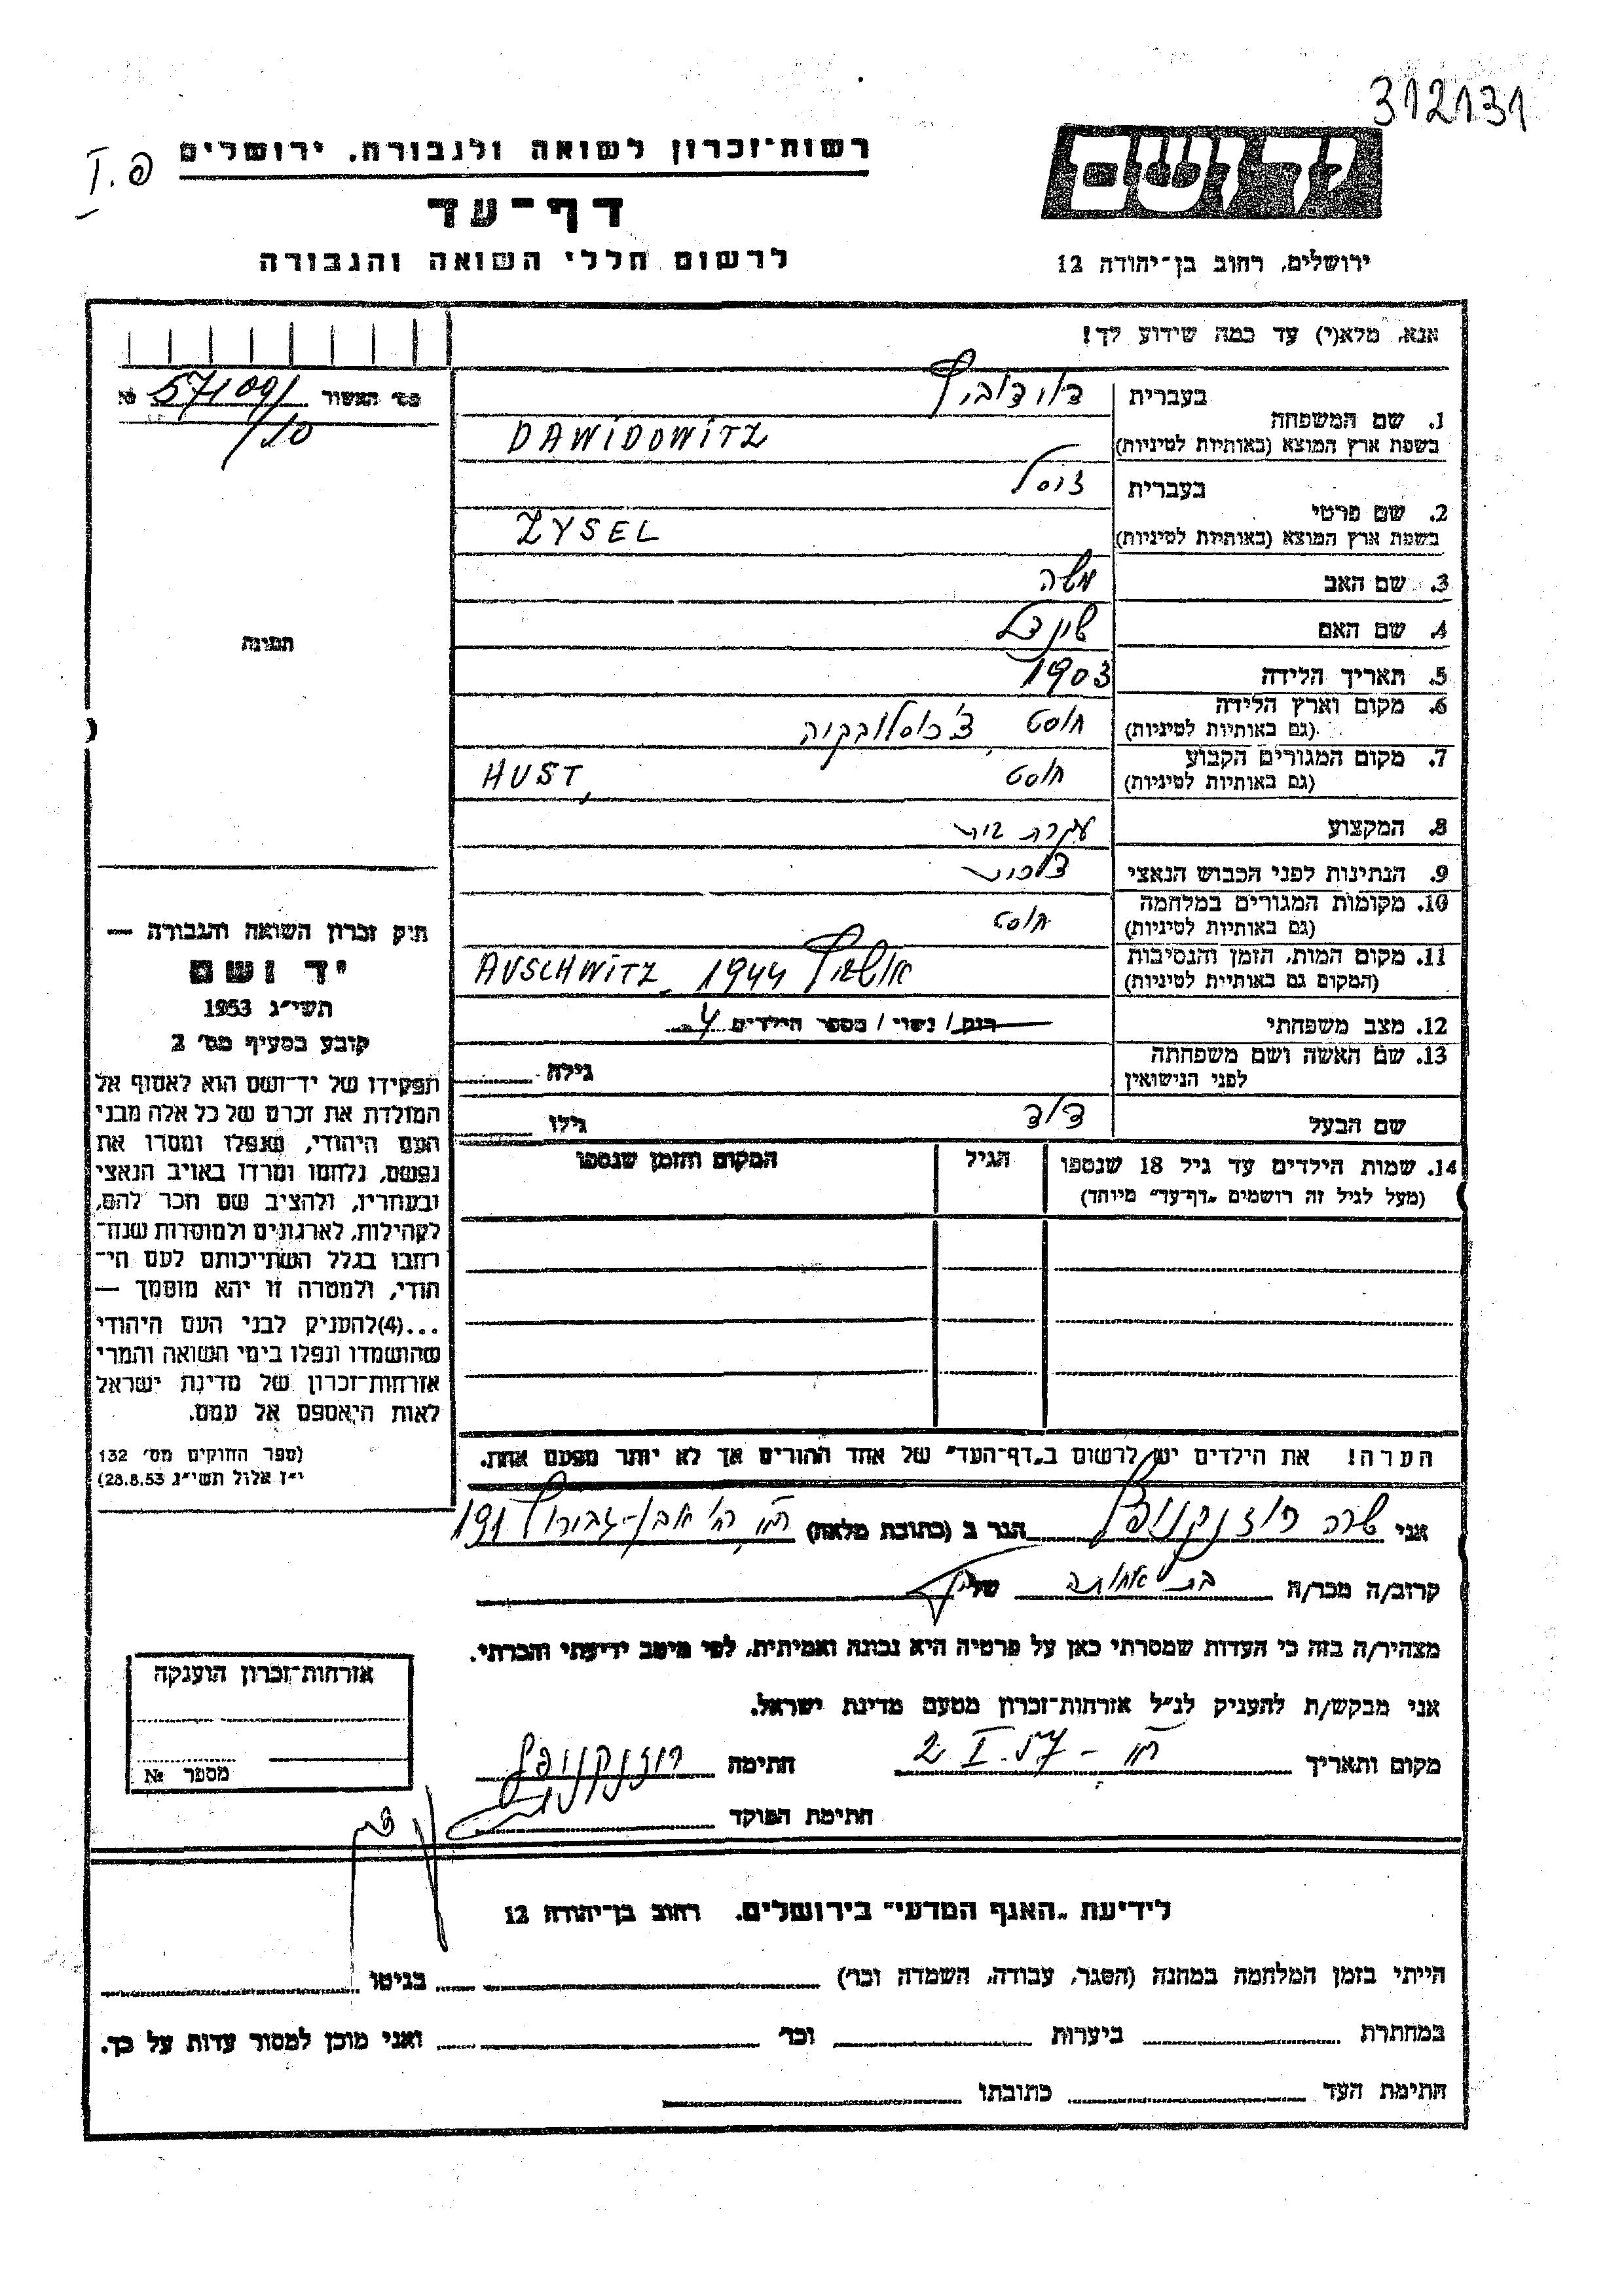 312131
פ. I
יד ושם
רשות-זכרון לשואה ולגבורה, ירושלים
דף-עד
לרשום חללי השואה והגבורה
ירושלים, רחוב בן-יהודה 12
אנא, מלא(י) עד כמה שידוע לך!
מס' האשור № 571091
/20
בעברית דוידוביץ
1. שם המשפחה
בשפת ארץ המוצא (באותיות לטיניות) DAWIDOWITZ
בעברית זיסל
2. שם פרטי
בשפת ארץ המוצא (באותיות לטיניות) ZYSEL
3. שם האב משה
4. שם האם שיינדל
תמונה
5. תאריך הלידה 1903
6. מקום וארץ הלידה חוסט צ'כוסלובקיה
(גם באותיות לטיניות)
7. מקום המגורים הקבוע חוסט HUST,
(גם באותיות לטיניות)
8. המקצוע עקרת בית
9. הנתינות לפני הכבוש הנאצי צ'כית
10. מקומות המגורים במלחמה חוסט
(גם באותיות לטיניות)
11. מקום המות, הזמן והנסיבות אושביץ 1944 AUSCHWITZ
(המקום גם באותיות לטיניות)
12. מצב משפחתי רווק / נשוי / מספר הילדים 4
13. שם האשה ושם משפחתה גילה
לפני הנישואין
שם הבעל דוד גילו
14. שמות הילדים עד גיל 18 שנספו הגיל המקום והזמן שנספו
(מעל לגיל זה רושמים "דף-עד" מיוחד)
תיק זכרון השואה והגבורה —
יד ושם
תשי"ג 1953
קובע בסעיף מס' 2
תפקידו של יד-ושם הוא לאסוף אל
המולדת את זכרם של כל אלה מבני
העם היהודי, שנפלו ומסרו את
נפשם, נלחמו ומרדו באויב הנאצי
ובעוזריו, ולהציב שם וזכר להם,
לקהילות, לארגונים ולמוסדות שנח-
רבו בגלל השתייכותם לעם הי-
הודי, ולמטרה זו יהא מוסמך —
...(4)להעניק לבני העם היהודי
שהושמדו ונפלו בימי השואה והמרי
אזרחות-זכרון של מדינת ישראל
לאות היאספם אל עמם.
(ספר החוקים מס' 132
י"ז אלול תשי"ג 28.8.53)
הערה! את הילדים יש לרשום ב"דף-העד" של אחד ההורים אך לא יותר מפעם אחת.
אני שרה רוזנקנופף הגר ב (כתובת מלאה) ת"א, רח' אבן-גבירול 191
קרוב/ה מכר/ה בת אחותה של
מצהיר/ה בזה כי העדות שמסרתי כאן על פרטיה היא נכונה ואמיתית, לפי מיטב ידיעתי והכרתי.
אני מבקש/ת להעניק לנ"ל אזרחות-זכרון מטעם מדינת ישראל.
מקום ותאריך ת"א - 2 I 57 חתימה רוזנקנופף
חתימת הפוקד
אזרחות-זכרון הוענקה
מספר №
לידיעת "האגף המדעי" בירושלים, רחוב בן-יהודה 12
הייתי בזמן המלחמה במחנה (הסגר, עבודה, השמדה וכו') בגיטו
במחתרת ביערות וכו' ואני מוכן למסור עדות על כך.
חתימת העד כתובתו